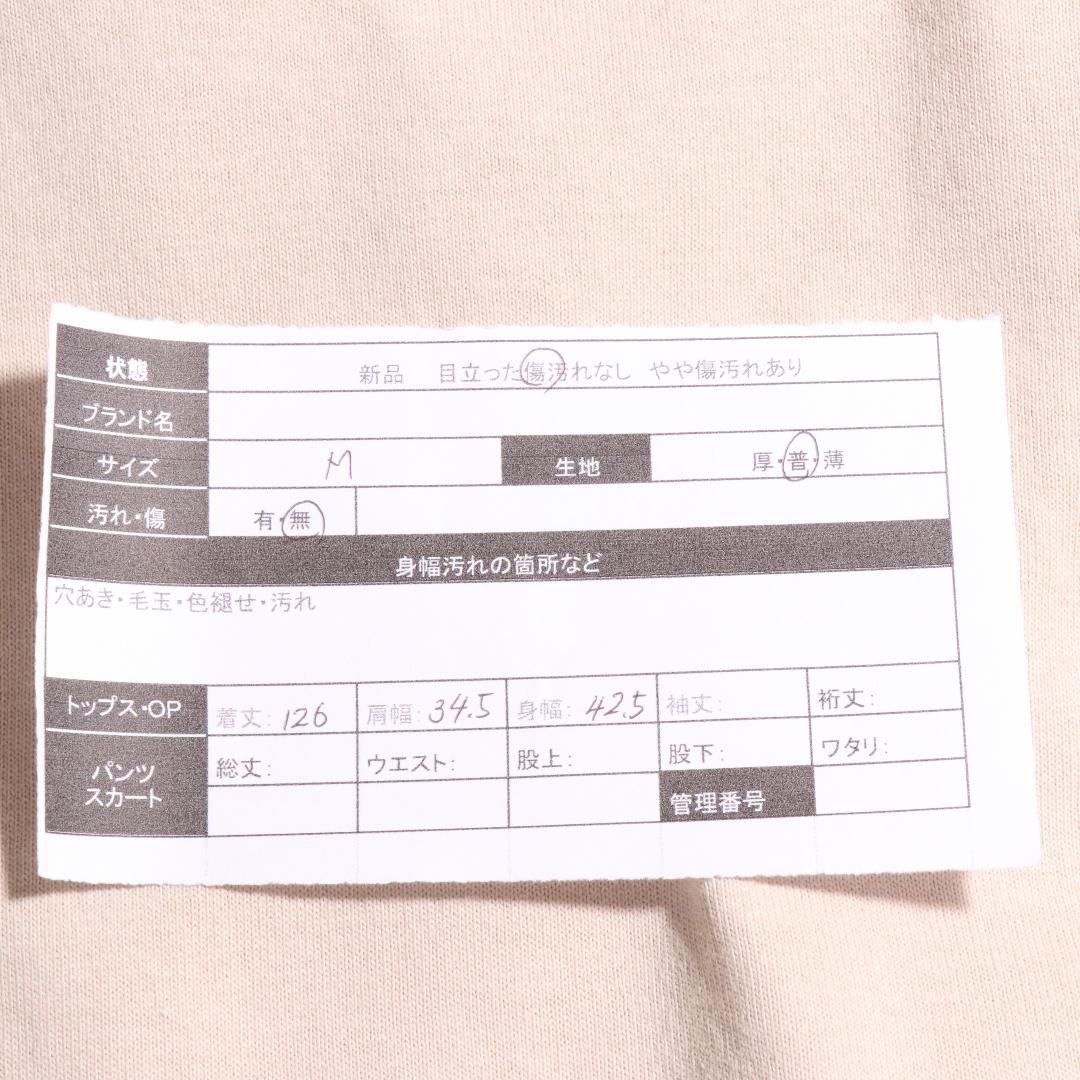 状態 新品 目立った傷汚れなし やや傷汚れあり
ブランド名
サイズ M 生地 厚・普・薄
汚れ・傷 有・無
身幅汚れの箇所など
穴あき・毛玉・色褪せ・汚れ
トップス・OP 着丈: 126 肩幅: 34.5 身幅: 42.5 袖丈: 裄丈:
パンツ スカート 総丈: ウエスト: 股上: 股下: ワタリ:
管理番号